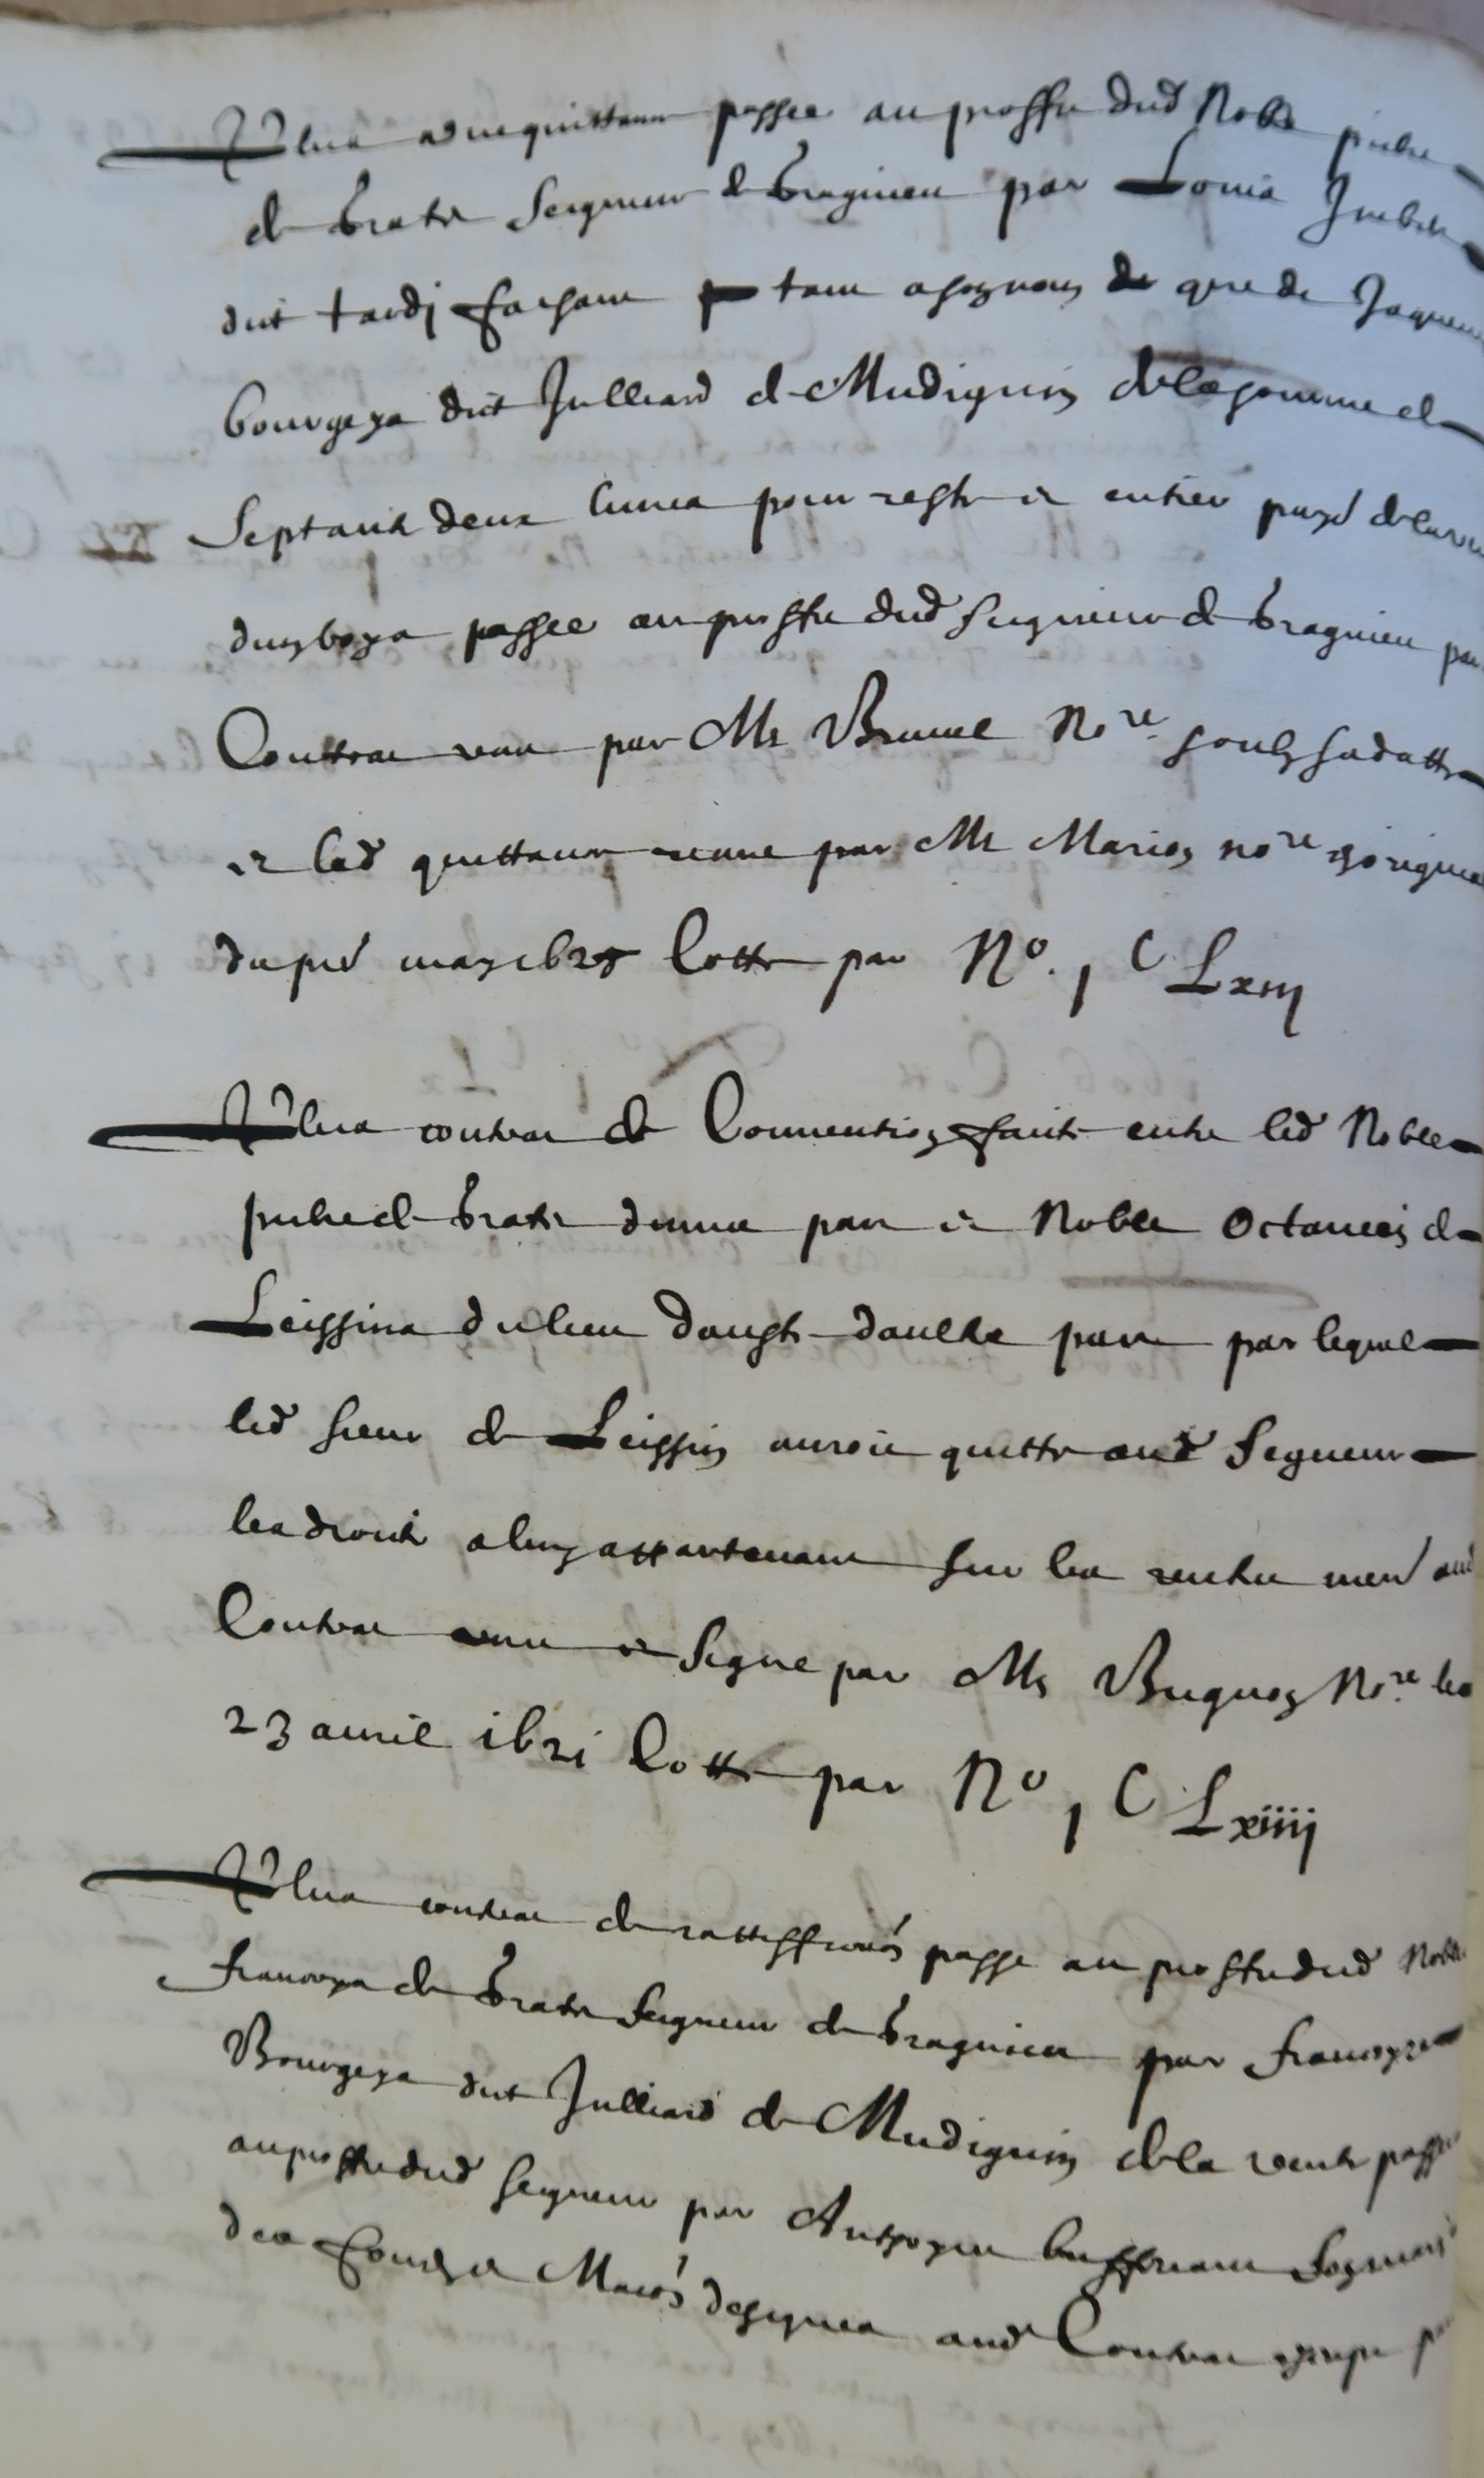 Plus une quittance passee au proffit dud Noble pierre
de brati Seigneur de bragnieu par Louis Imbert
dict tardi faisant tant a son nom que de Jaques
bourgeys dict Julliard de Mudignin de la somme de
Septante deux livres pour reste et entier paye de la
dung boys passee au proffit dud Seigneur de bragnieu par
Contrat receu par Me Brunel Nore soubz sadatte
et lad quittance receue par Me Marion nore
du pre may 1625 Cotte par No. 1 C Lxiij
Plus contrat de Convention faicte entre led Noble
pierre de brati dune part et Noble Octavien de
Leissins du lieu daoste daultre part par lequel
led sieur de Leissin auroit quitte aud Segneur
les droictz a luy appartenant sur les rentes men aud
Contrat receu et Signe par Me Buguon Nore le
23 avril 1621 Cotte par No 1 C Lxiiij
Plus contrat de rattiffion passe au proffit dud Noble
francoys de brati Seigneur de bragnieu par francoyse
Bourgeys dict Julliard de Mudignin de la vente passee
au proffit dud Seigneur par Anthoyne buffevant
des fondz et designes aud Contrat